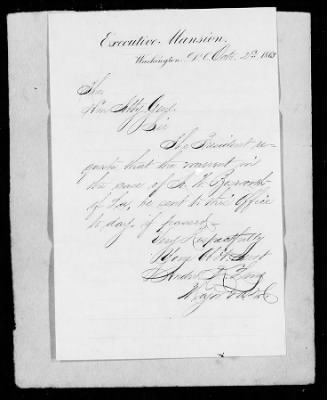 Executive Mansion,
Washington, D.C. Oct. 2nd 1865
The
Hon Atty Genl.
Sir
The President re-
quests that the warrant in
the case of A. H.
of Va, be sent to this Office
to day, if passed.
Very Respectfully
Your Obt. Servt
Andr. K. Long